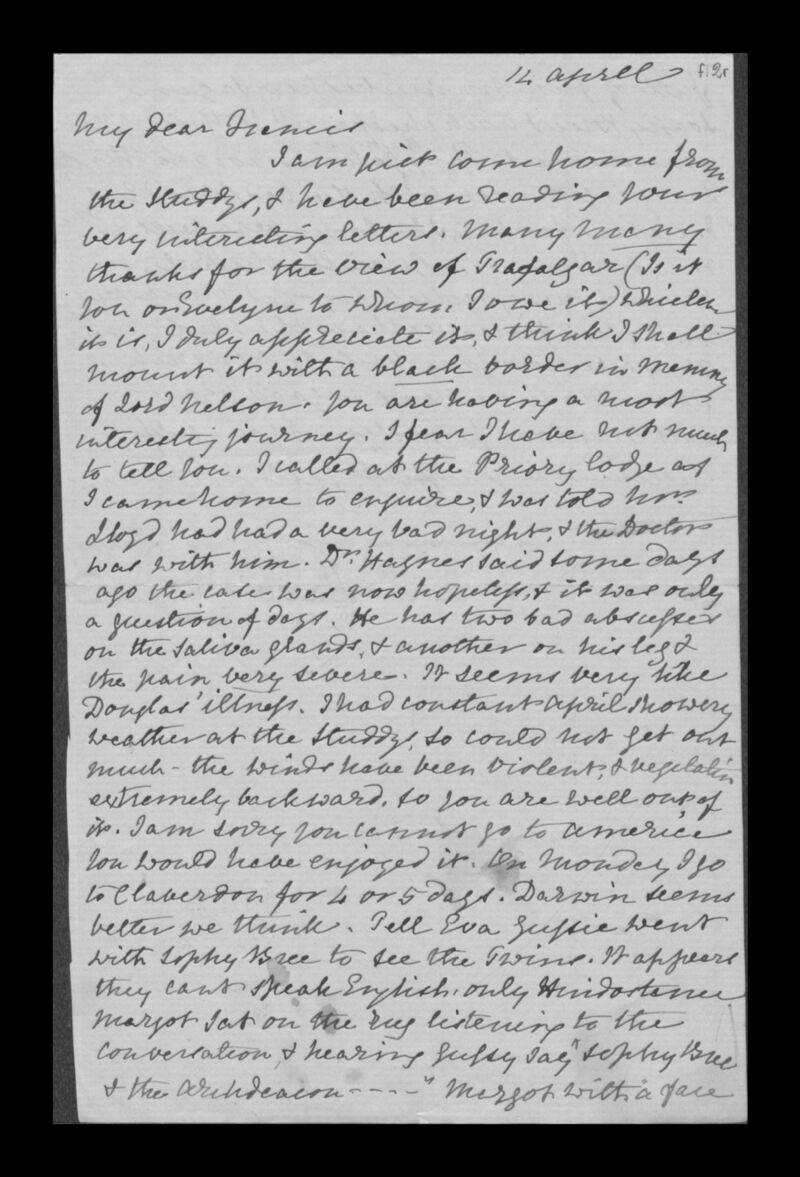 14 April f.2r
My dear Francis
I am just come home from
the Studdys, & have been reading your
very interesting letters. Many many
thanks for the view of Trafalgar (Is it
you or Evelyne to whom I owe it) whichever
it is, I duly appreciate it, & think I shall
mount it with a black border in memory
of Lord Nelson. You are having a most
interesting journey. I fear I have not much
to tell you. I called at the Priory lodge as
I came home to enquire, & was told Mr.
Lloyd had had a very bad night, & the Doctor
was with him. Dr. Haynes said some days
ago the case was now hopeless, & it was only
a question of days. He has two bad abscesses
on the Saliva glands, & another on his leg &
the pain very severe. It seems very like
Douglas' illness. I had constant April showery
weather at the Studdys, so could not get out
much - the winds have been violent, & vegetation
extremely backward. So you are well out of
it. I am sorry you cannot go to America
You would have enjoyed it. On Monday I go
to Claverdon for 4 or 5 days. Darwin seems
better we think. Tell Eva Gussie went
with Sophy Bree to see the Twins. It appears
they cant speak English, only Hindostanee
Margot sat on the rug listening to the
conversation, & hearing Gussy say "Sophy Bree
& the Archdeacon ----" Margot with a face